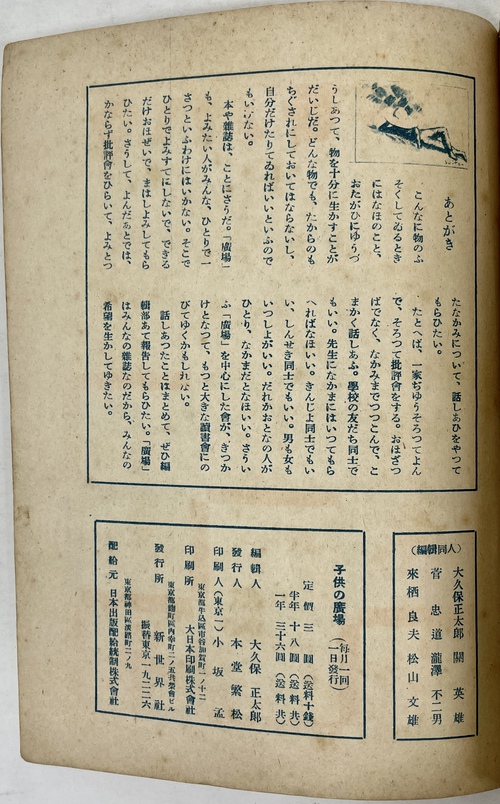 あとがき
こんなに物のふ
そくしてゐるとき
にはなほのこと、
おたがひにゆうづ
うしあつて、物を十分に生かすことが
だいじだ。どんな物でも、たからのも
ちぐされにしておいてはならないし、
自分だけたりてゐればいいといふので
もいけない。
本や雜誌は、ことにさうだ。「廣場」
も、よみたい人がみんな、ひとりで一
さつといふわけにはいかない。そこで
ひとりでよみすてにしないで、できる
だけおほぜいで、まはしよみしてもら
ひたい。さうして、よんだあとでは、
かならず批評會をひらいて、よみとつ
たなかみについて、話しあひをやつて
もらひたい。
たとへば、一家ぢゆうそろつてよん
で、そろつて批評會をする。おほざつ
ぱでなく、なかみまでつつこんで、こ
まかく話しあふ。學校の友だち同士で
もいい。先生になかまにはいつてもら
へればなほいい。きんじよ同士でもい
い、しんせき同士でもいい。男も女も
いつしよがいい。だれかおとなの人が
ひとり、なかまだとなほいい。さうい
ふ「廣場」を中心にした會が、きつか
けとなつて、もつと大きな讀書會にの
びてゆくかもしれない。
話しあつたことはまとめて、ぜひ編
輯部あて報告してもらひたい。「廣場」
はみんなの雜誌なのだから、みんなの
希望を生かしてゆきたい。
(編輯同人)
大久保正太郎 關 英雄
菅 忠道 瀧澤 不二男
來栖 良夫 松山 文雄
子供の廣場 (每月一回一日發行)
定價三圓(送料十錢)
半年 十八圓(送料共)
一年 三十六圓(送料共)
編輯人 大久保 正太郎
發行人 本堂 繁松
印刷人(東京一)小坂 孟
東京都牛込區市谷加賀町一ノ十二
印刷所 大日本印刷株式會社
東京都麴町區內幸町二ノ五共榮會ビル
發行所 新世界社
振替東京一九二二六
東京都神田區淡路町二ノ九
配給元 日本出版配給統制株式會社